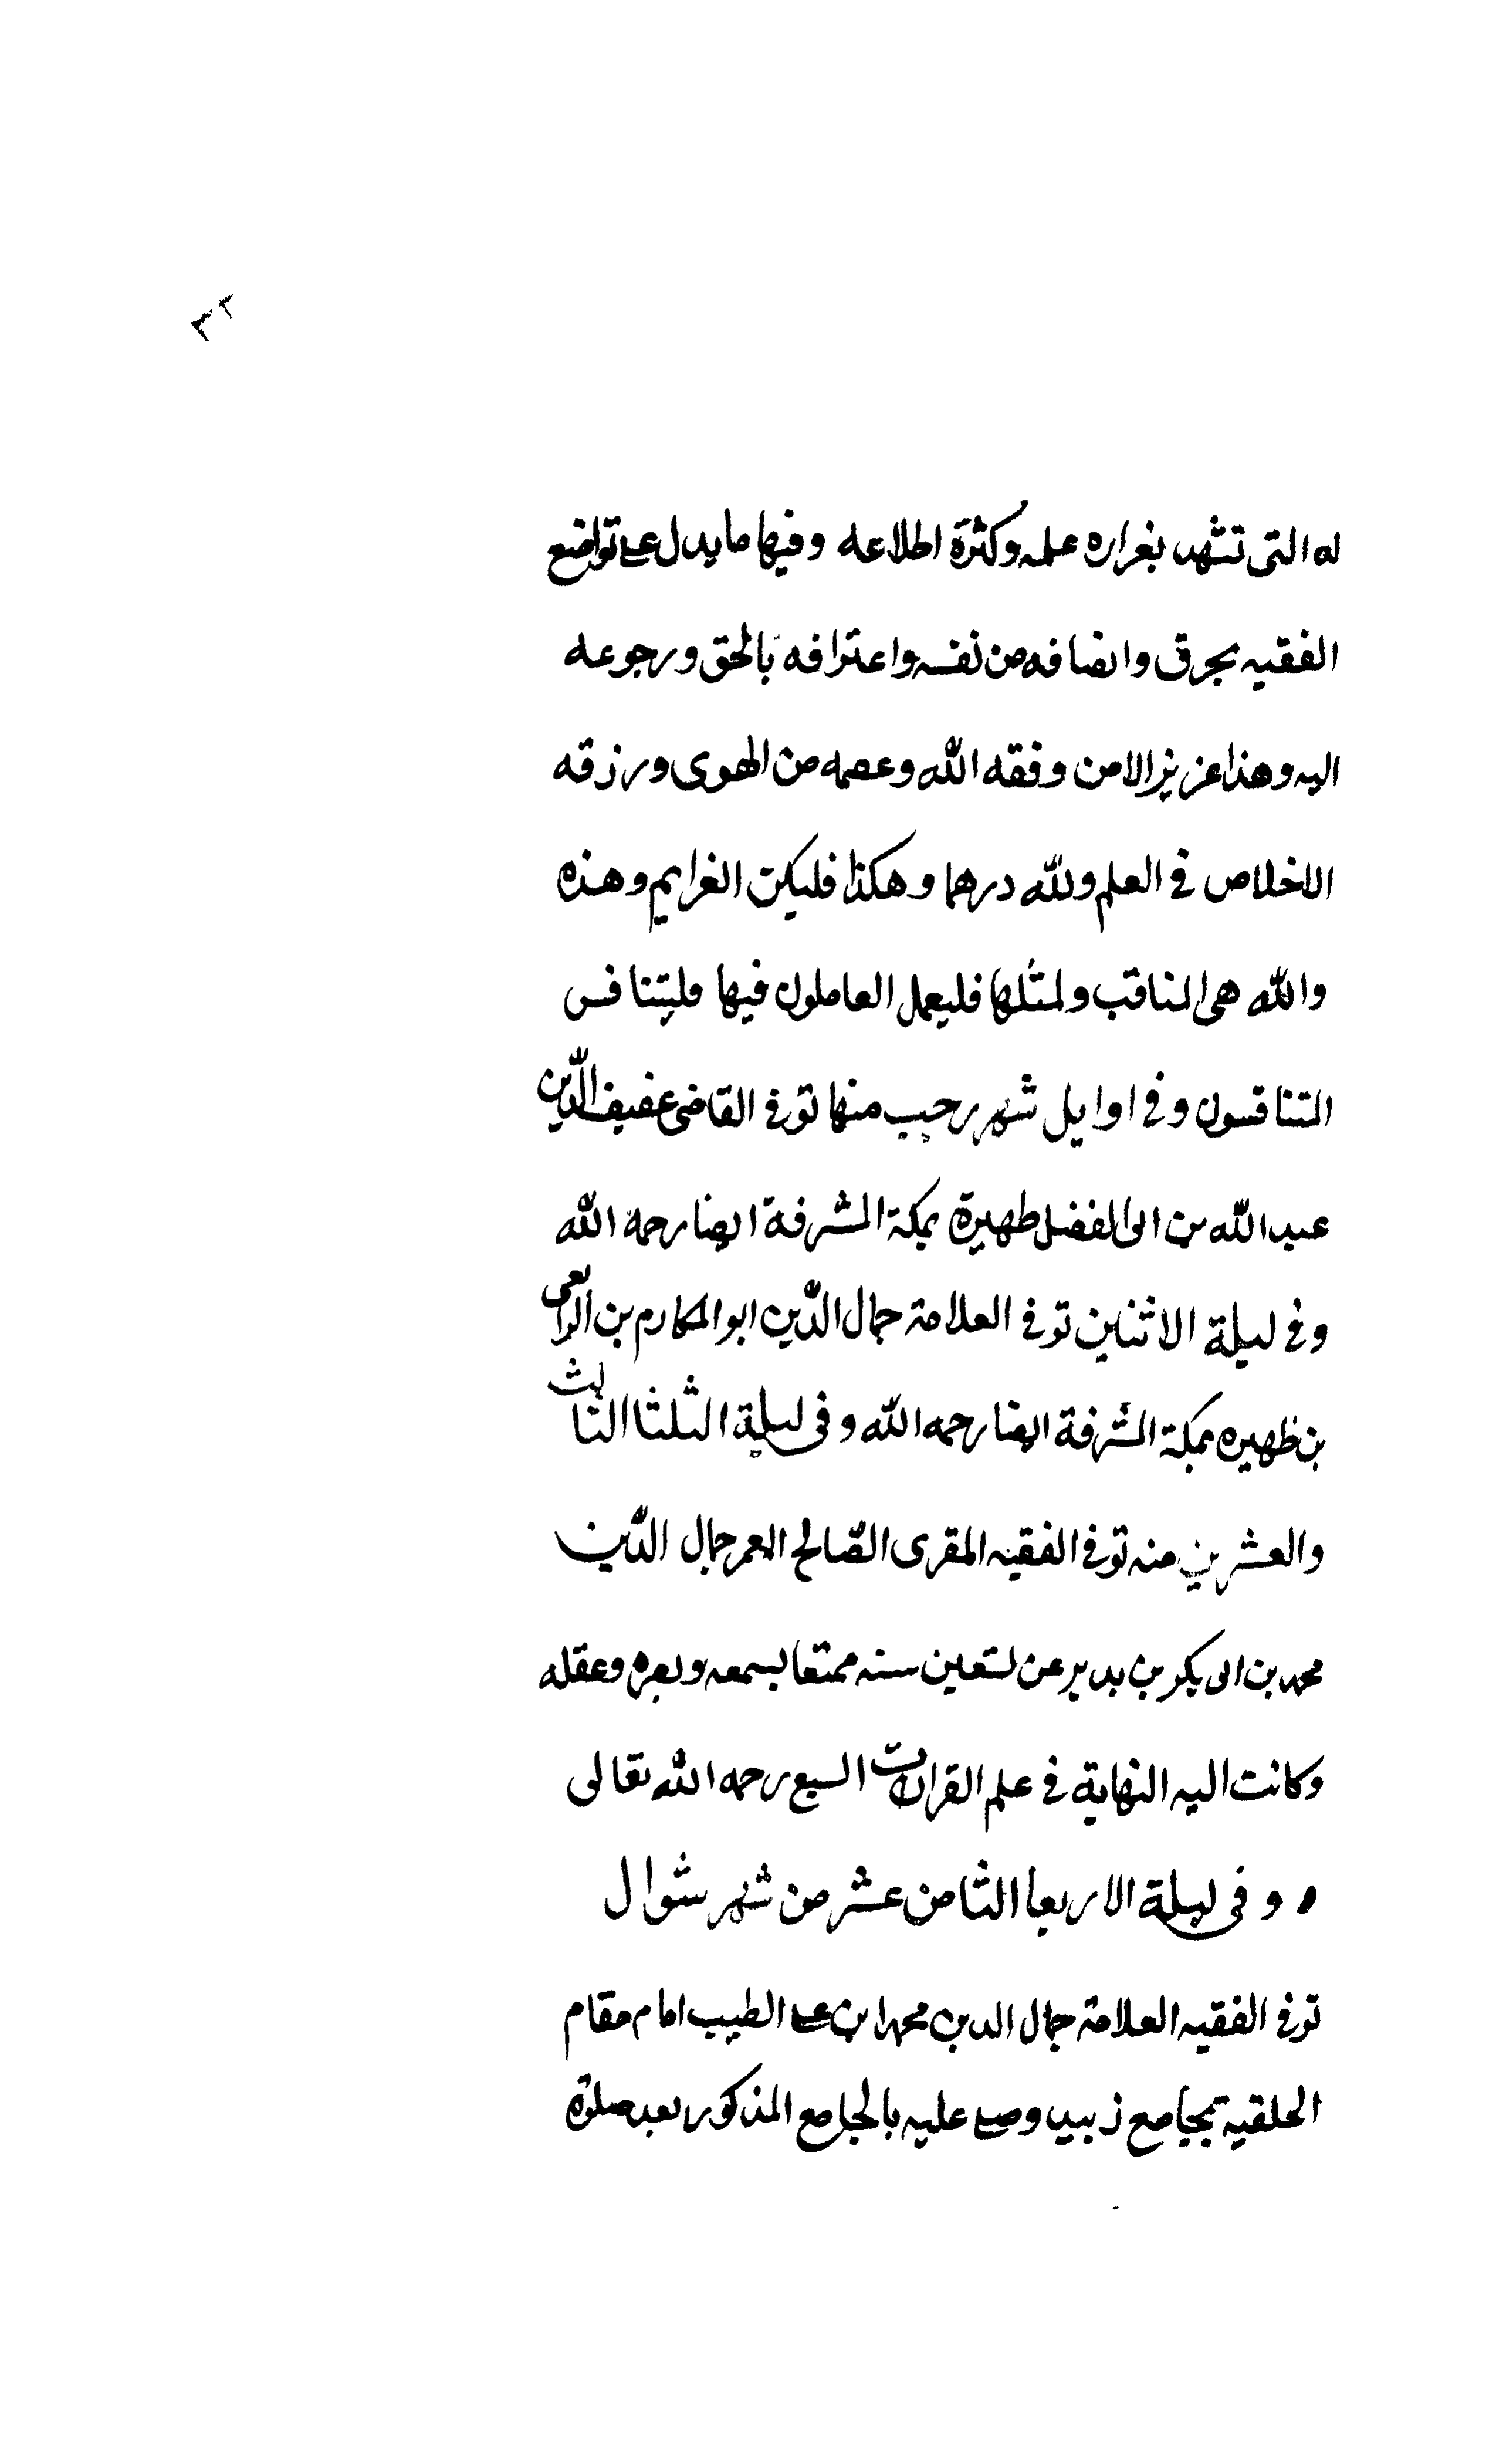 ٣٢
له التى تشهد بغراره علمه وكثرة اطلاعه وفيها ما يدل على تواضع
الفقيه بحرق وانصافه من نفسه واعترافه بالحق ورجوعه
اليه وهذا عزيز الا من وفقه الله وعصمه من الهوى ورزقه
الاخلاص في العلم ولله درهما وهكذا فليكن الغرايم وهذه
والله هى المناقب ولمثلها فليعمل العاملون فيها فليتنافس
المتنافسون وفي اوايل شهر رجب منها توفي القاضى عفيف الدين
عبد الله بن ابى الفضل ظهيرة بمكة المشرفة ايضا رحمه الله
وفي ليلة الاثنين توفي العلامة جمال الدين ابو المكارم بن الرافعى
بن ظهيره بمكة المشرفة ايضا رحمه الله وفى ليلة الثلثا الثالث
والعشرين منه توفي الفقيه المقرى الصالح المعمر جمال الدين
محمد بن ابى بكر بن بدير عن تسعين سنه ممتعا بسمعه وبصره وعقله
وكانت اليه النهاية في علم القراات السبع رحمه الله تعالى
وفى ليلة الاربعا الثامن عشر من شهر شوال
توفي الفقيه العلامة جمال الدين محمد ابن على الطيب امام مقام
الحنفية بجامع زبيد وصلى عليه بالجامع المذكور بعد صلوة